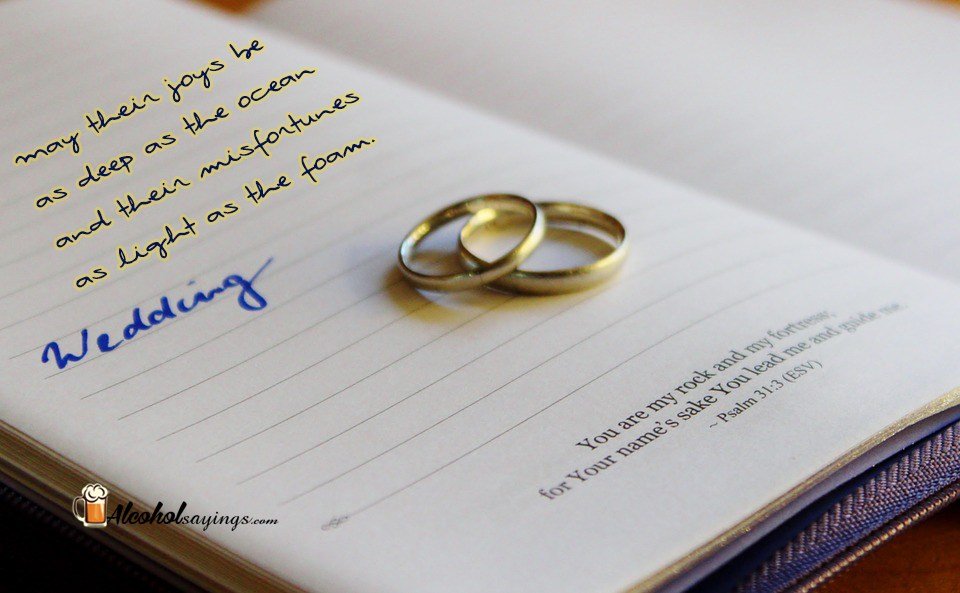 may their joys be
as deep as the ocean
and their misfortunes
as light as the foam.
Wedding
You are my rock and my fortress;
for Your name's sake You lead me and guide me.
~ Psalm 31:3 (ESV)
Alcoholsayings.com